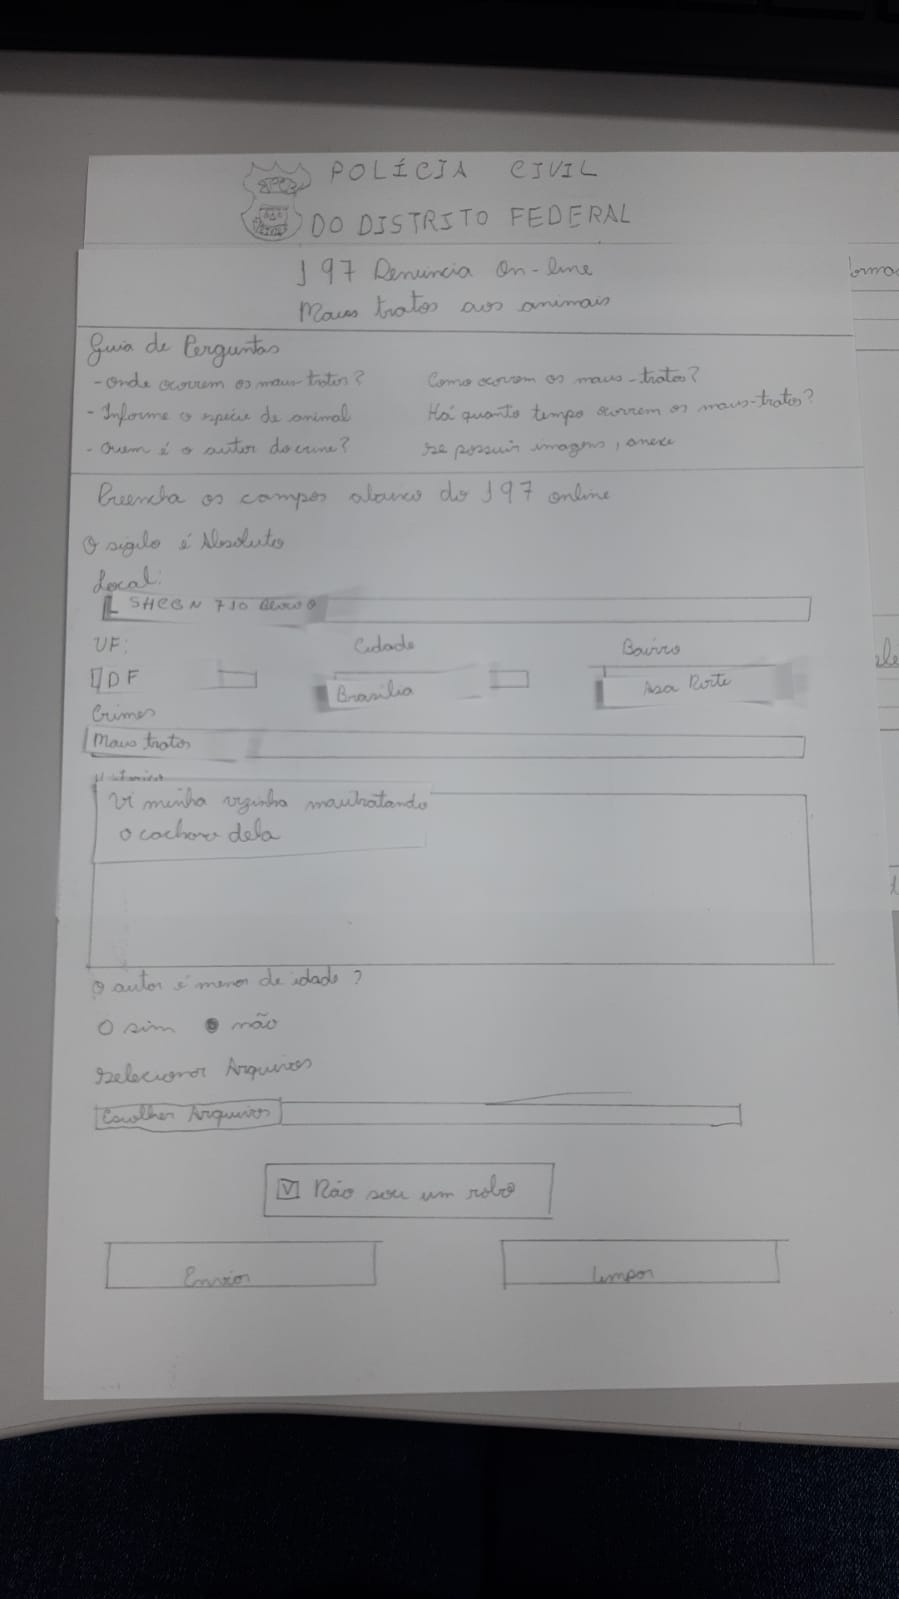 POLÍCIA CIVIL
DO DISTRITO FEDERAL
197 Denuncia On-line
Maus tratos aos animais
Guia de Perguntas
- Onde ocorrem os maus-tratos? Como ocorrem os maus-tratos?
- Informe a espécie de animal Há quanto tempo ocorrem os maus-tratos?
- Quem é o autor do crime? Se possuir imagens, anexe
Preencha os campos abaixo do 197 online
O sigilo é Absoluto
Local:
SHCGN 710 Bloco O
UF: Cidade Bairro
DF Brasília Asa Norte
Crimes
Maus tratos
Vi minha vizinha mautratando
o cachorro dela
O autor é menor de idade?
O sim não
Selecionar Arquivos
Escolher Arquivos
Não sou um robo
Enviar Limpar